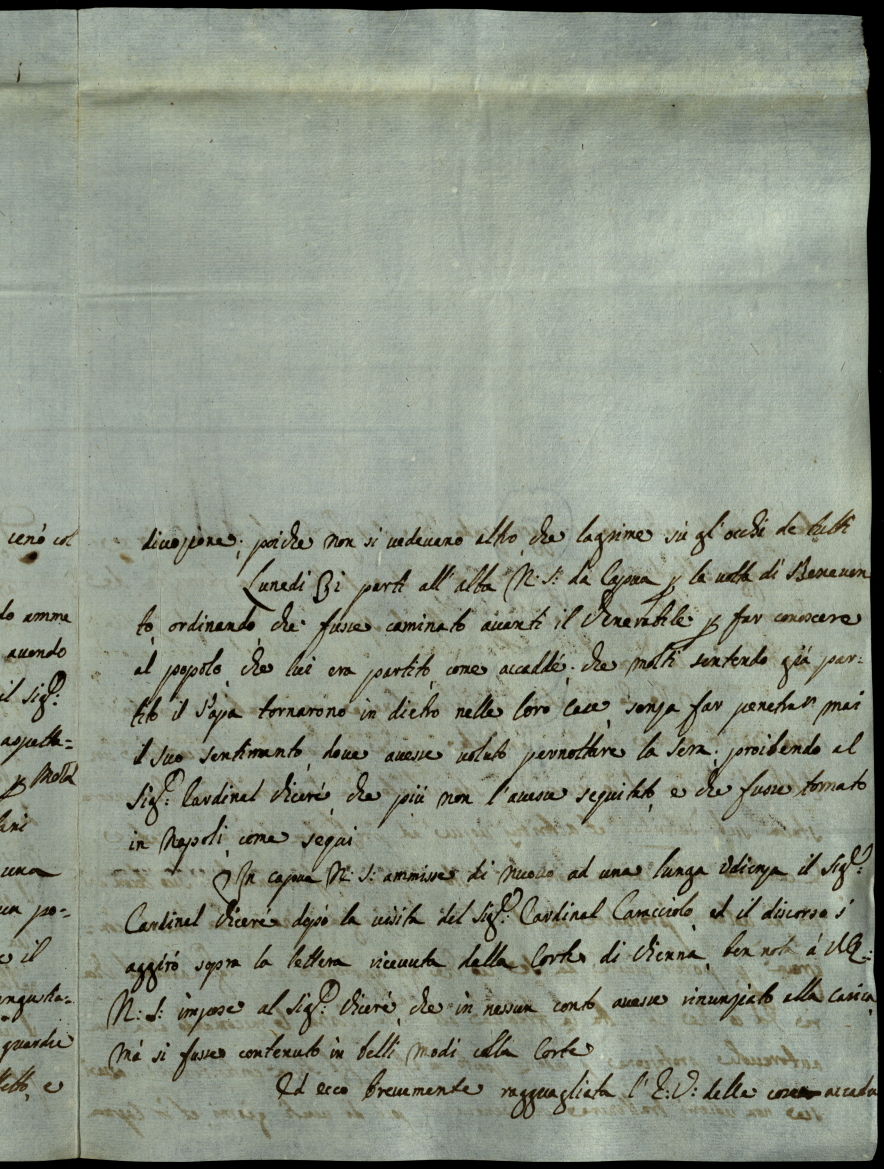 cenò col
do amme
avendo
il Sig.r
aspetta=
p Mola
una
un po=
e il
angusta=
guardie
e
divozione; poiche non si vedevano altro che lagrime sù gl'occhi de tutti
Lunedi 31 parti all'alba N: S: da Capua p la volta di Beneven
to, ordinando che fusse caminato avanti il Venerabile p far conoscere
al popolo, che lui era partito, come accaddè; che molti sentendo già par=
tito il Papa tornarono in dietro nelle loro case, senza far penetrar mai
il suo sentimento, dove avesse voluto pernottare la sera; proibendo al
Sig.r Cardinal Vicerè, che più non l'avesse seguitato, e che fusse tornato
in Napoli, come segui
In capua N: S: ammisse di nuovo ad una lunga Udienza il Sig.r
Cardinal Vicerè dopò la visita del Sig.r Cardinal Caracciolo, ed il discorso s'
aggirò sopra la lettera ricevuta dalla Corte di Vienna, ben nota à
N: S: impose al Sig.r Vicerè, che in nessun conto avesse rinunziato alla carica,
mà si fusse contenuto in belli modi colla Corte
Ed ecco brevemente ragguagliata l'E: V: delle cose accadu